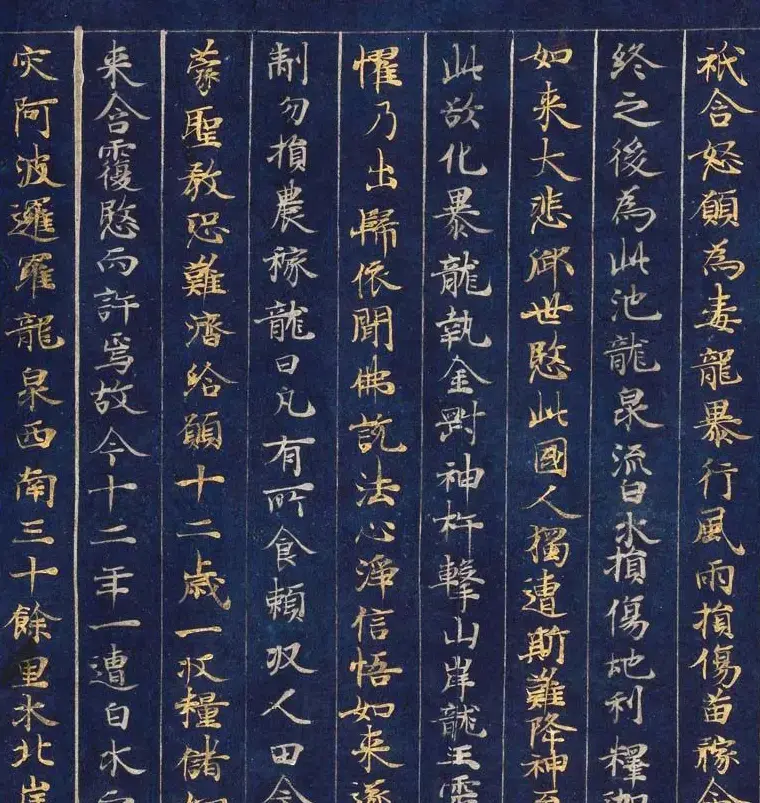 祇含怒願為毒龍暴行風雨損傷苗稼
終之後為此池龍泉流白水損傷地利釋迦
如来大悲御世愍此國人獨遭斯難降神至
此欲化暴龍執金對神杵擊山岸龍王震
懼乃出歸依聞佛說法心淨信悟如来遂
制勿損農稼龍曰凡有所食賴収人田今
蒙聖教恐難濟給願十二歲一収糧儲如
来含覆愍而許焉故今十二年一遭白水
灾阿波邏羅龍泉西南三十餘里水北岸